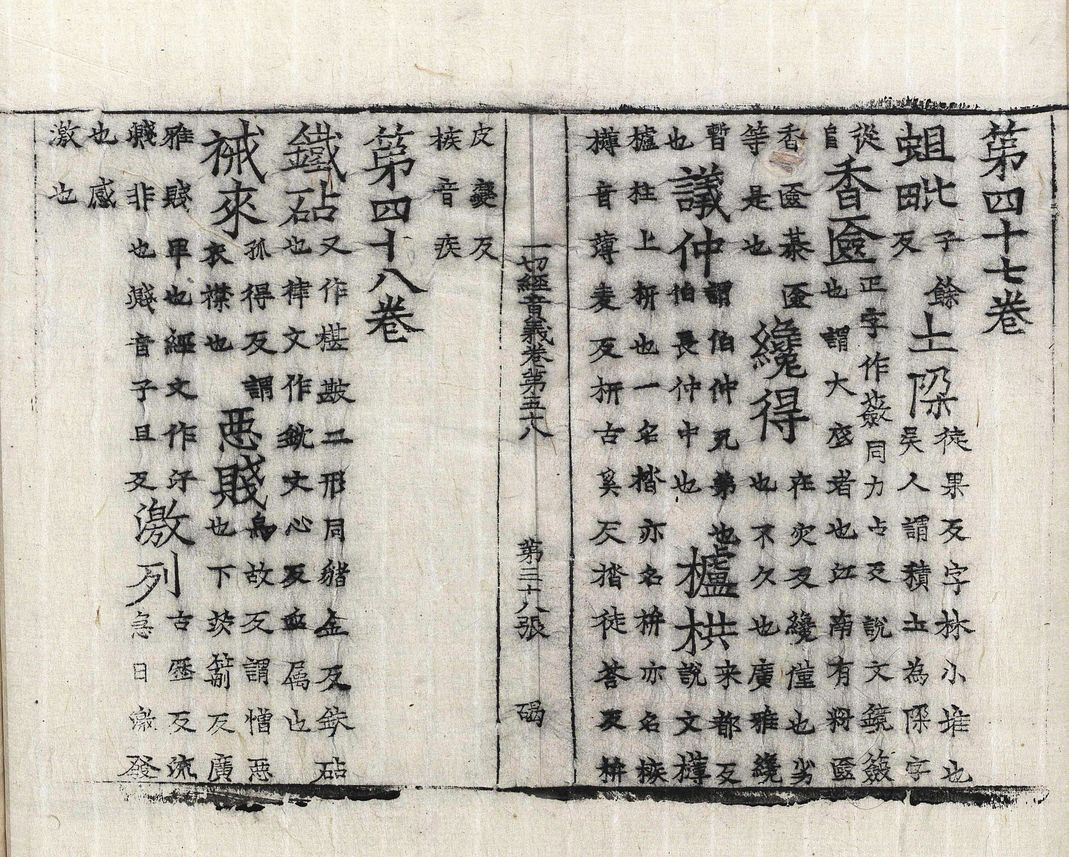 第四十七卷
蛆毗子餘反土𡐦徒果反字林小堆也吳人謂積土為𡐦字
從𠂤香匳正字作籢同力占反說文鏡籢也謂大底者也江南有將匳
香匳棊匳等是也纔得在灾反纔僅也劣也不久也廣雅纔
暫也議仲謂伯仲兄弟也伯長仲中也櫨栱来都反說文欂
櫨柱上枅也一名㭼亦名栟亦名㮨欂音薄麦反枅古奚反㭼徒荅反栟
一切經音義卷第五十八 第三十八張 碣
皮變反㮨音疾
第四十八卷
鐵砧又作椹㪛二形同豬金反鈇砧也律文作鈂文心反臿属也
祴來孤得反謂衣襟也惡賤烏故反謂憎惡也下茨箭反廣
雅賤卑也經文作汙濺非也濺音子旦反激列古歷反流急曰激發
也感激也